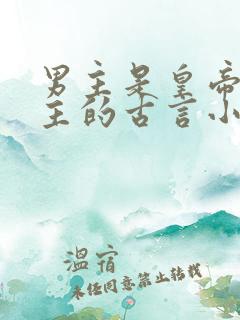 男主是皇帝
主的古言小
温宿
未经同意禁止转载